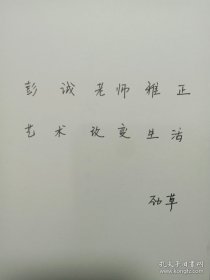 彭诚老师雅正
艺术改变生活
孔夫子旧书网